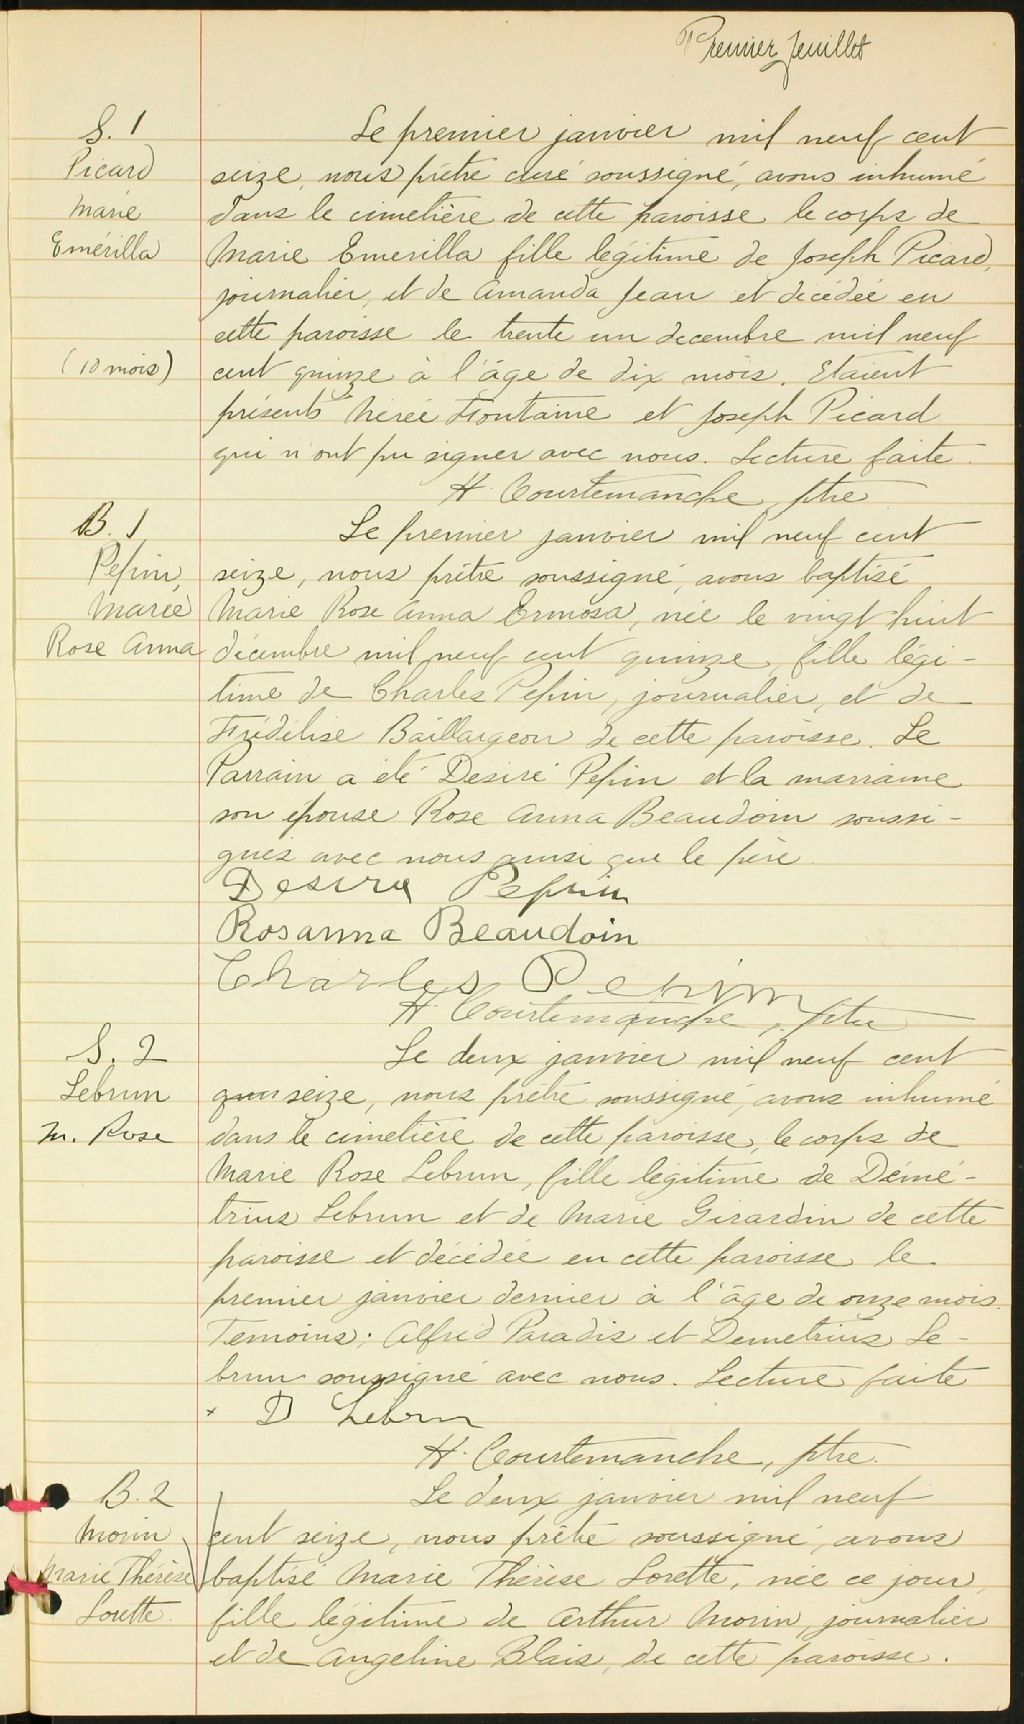 Premier feuillet
S. 1
Picard
Marie
Emérilla
(10 mois)
Le premier janvier mil neuf cent
seize, nous prêtre curé soussigné, avons inhumé
dans le cimetière de cette paroisse le corps de
Marie Emerilla fille légitime de Joseph Picard,
journalier, et de Amanda Jean et décédée en
cette paroisse le trente un decembre mil neuf
cent quinze à l'âge de dix mois. Etaient
présents Nérée Fontaine et Joseph Picard
qui n'ont pu signer avec nous. Lecture faite.
H. Courtemanche, ptre
B. 1
Pepin,
Marie
Rose Anna
Le premier janvier mil neuf cent
seize, nous prêtre soussigné, avons baptisé
Marie Rose Anna Ermosa, née le vingt huit
décembre mil neuf cent quinze, fille légi-
time de Charles Pepin, journalier, et de
Fridélise Baillargeon de cette paroisse. Le
Parrain a été Desiré Pepin et la marraine
son épouse Rose Anna Beaudoin soussi-
gnés avec nous ainsi que le père.
Desire Pepin
Rosanna Beaudoin
Charles Pepin
H. Courtemanche, ptre
S. 2
Lebrun
M. Rose
Le deux janvier mil neuf cent
seize, nous prêtre soussigné, avons inhumé
dans le cimetière de cette paroisse, le corps de
Marie Rose Lebrun, fille légitime de Démé-
trius Lebrun et de Marie Girardin de cette
paroisse et décédée en cette paroisse le
premier janvier dernier à l'âge de onze mois.
Temoins: Alfred Paradis et Demetrius Le-
brun soussigné avec nous. Lecture faite
x D Lebrun
H. Courtemanche, ptre.
B. 2
Morin
Marie Thérèse
Lorette.
Le deux janvier mil neuf
cent seize, nous prêtre soussigné, avons
baptisé Marie Thérèse Lorette, née ce jour,
fille légitime de Arthur Morin, journalier
et de Angeline Blais, de cette paroisse.